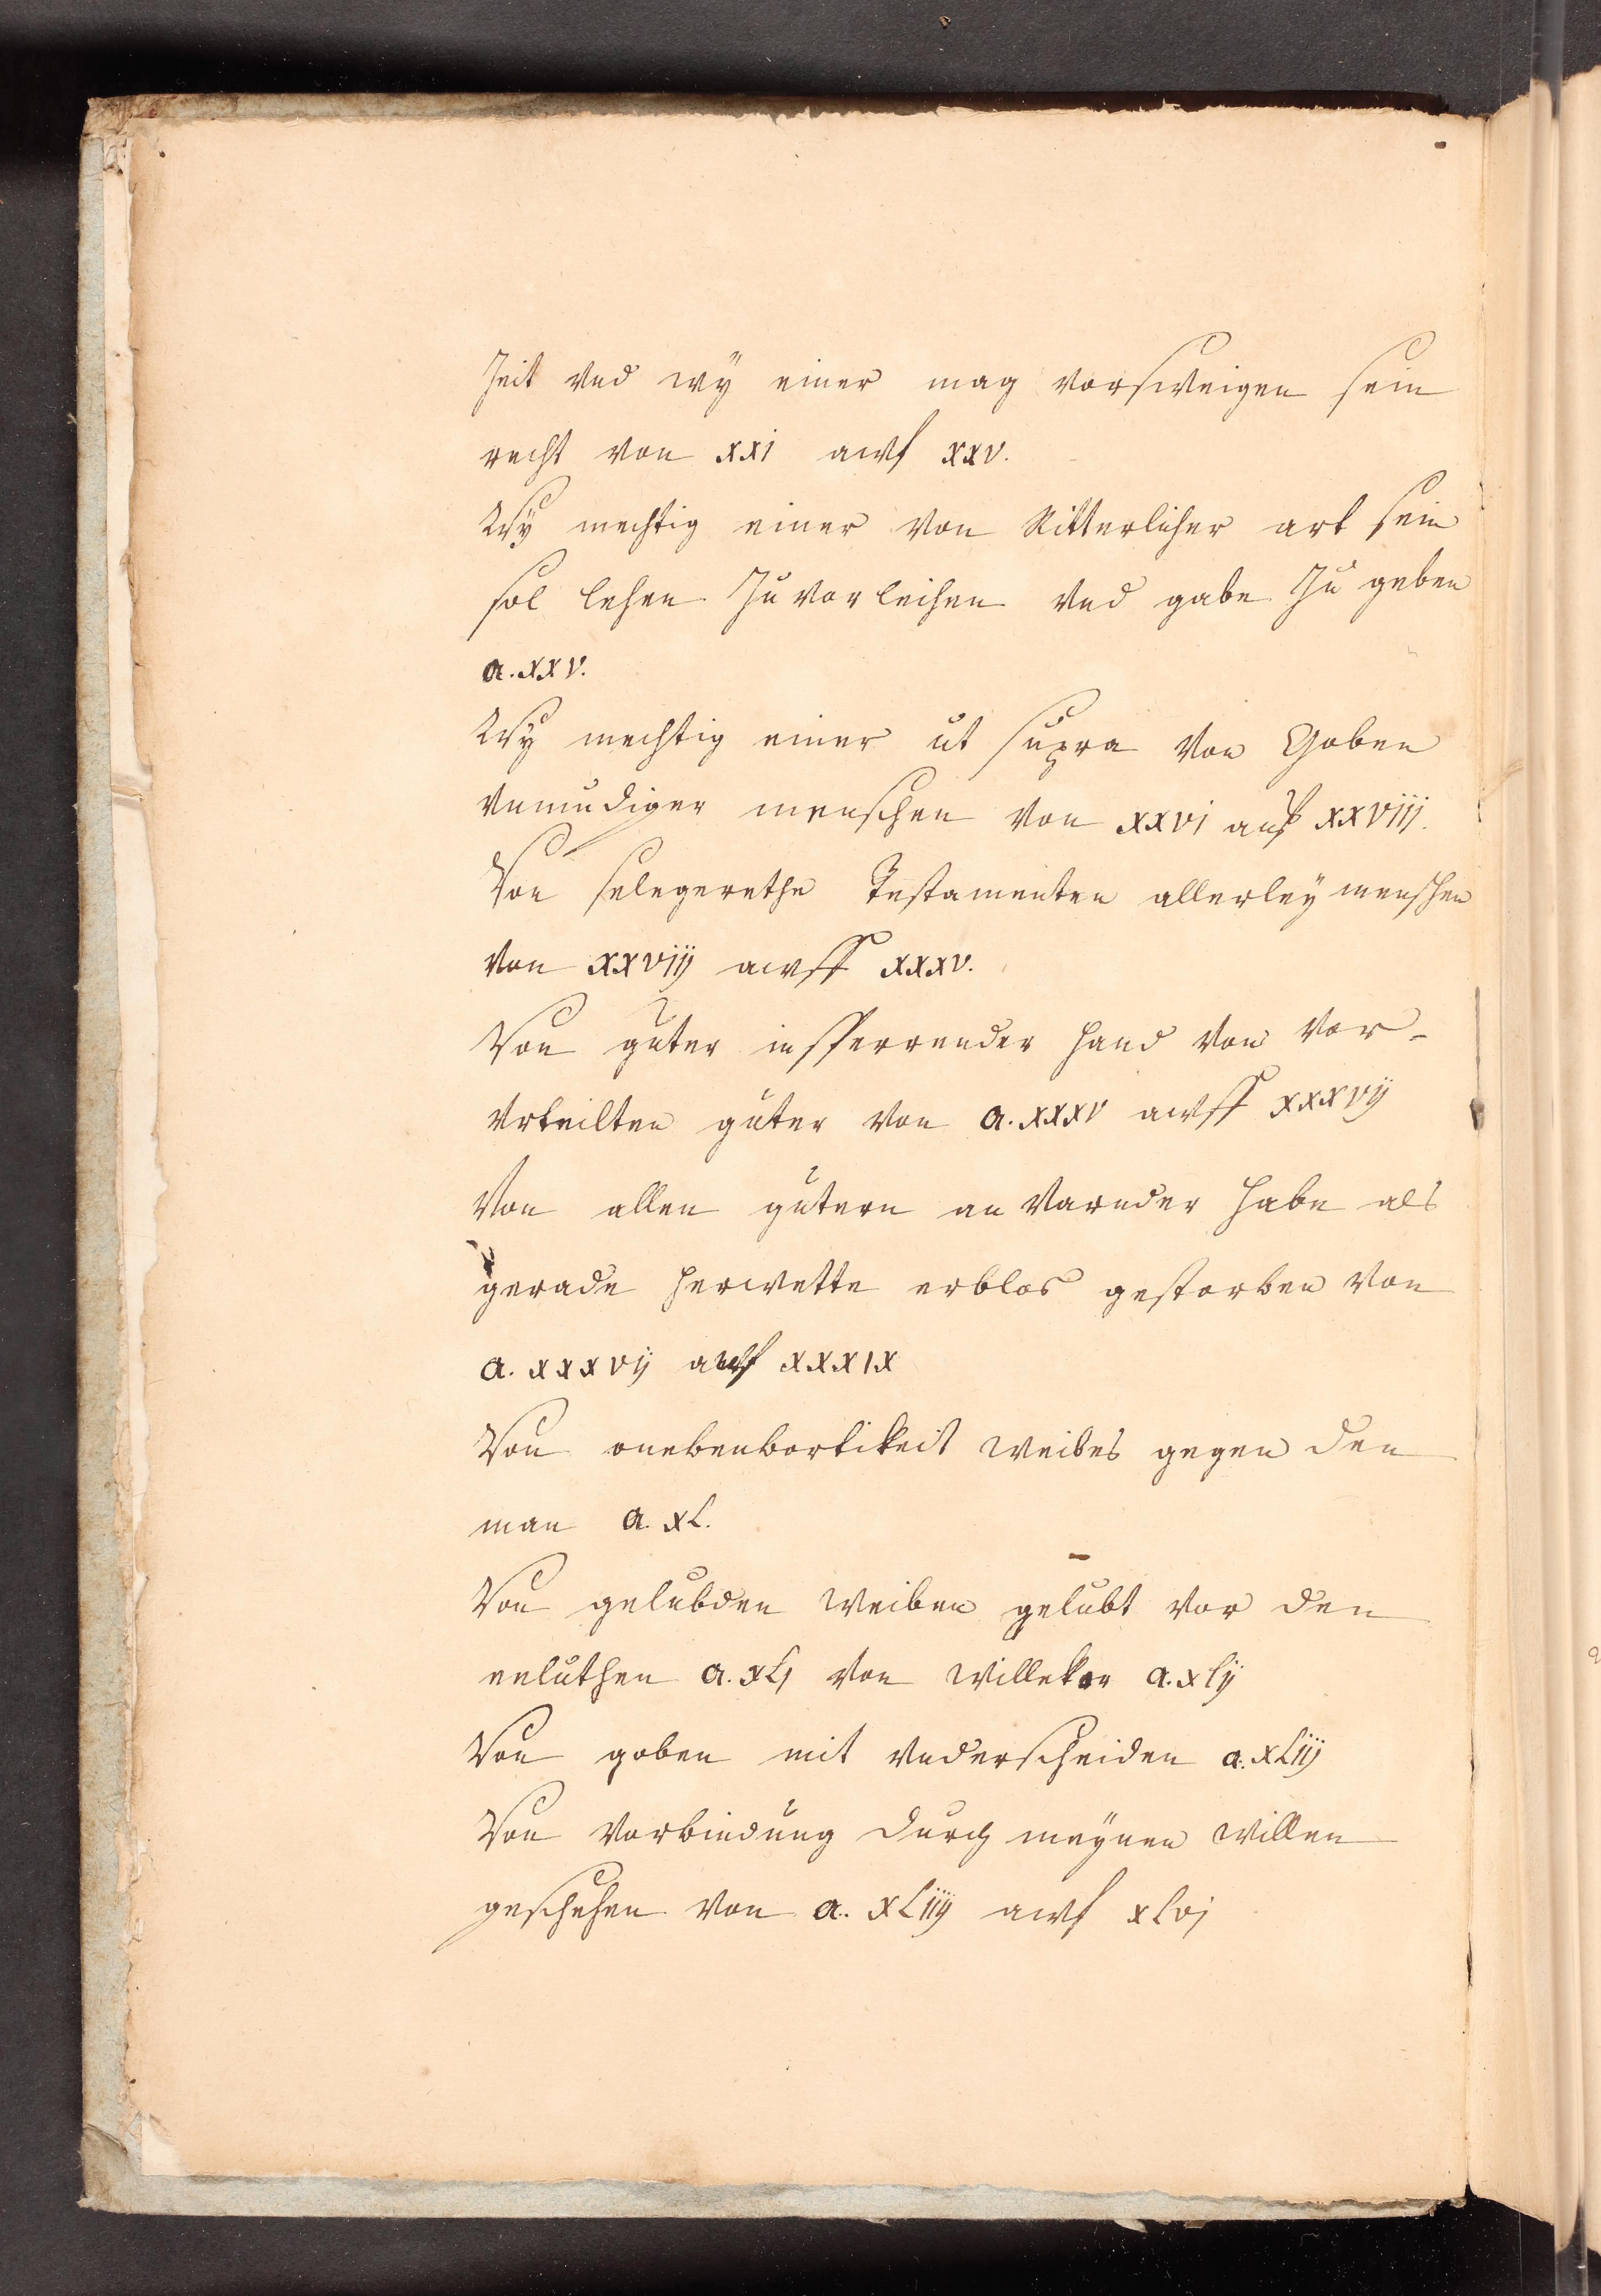 Zeit vnd wÿ einer mag vorsweigen sein
recht von xxi awf xxv.
Wÿ mechtig einer von Ritterlicher art sein
sol lehen Zuvorleihen vnd gabe Zu geben
a. xxv.
Wÿ mechtig einer ut supra von Goben
vnmudiger menschen von xxvi auf xxviij.
Von selegerethe Testamenten allerleÿ menschen
von xxviij awff xxxv.
Von guter insterrender hand von vor-
vrteilten guter von a. xxxv awff xxxvij
Von allen gutern an varnder habe als
gerade herwette erblos gestorben von
a. xxxvij awf xxxix
Von onebenbortikeit weibes gegen den
man a. xL.
Von gelubden weiben gelubt vor den
eeluthen a. xLj von willekor a. xLij
Von goben mit vnderscheiden a. xLiij
Von Vorbindung durch meÿnen willen
geschehen von a. xLiiij awf xLvj